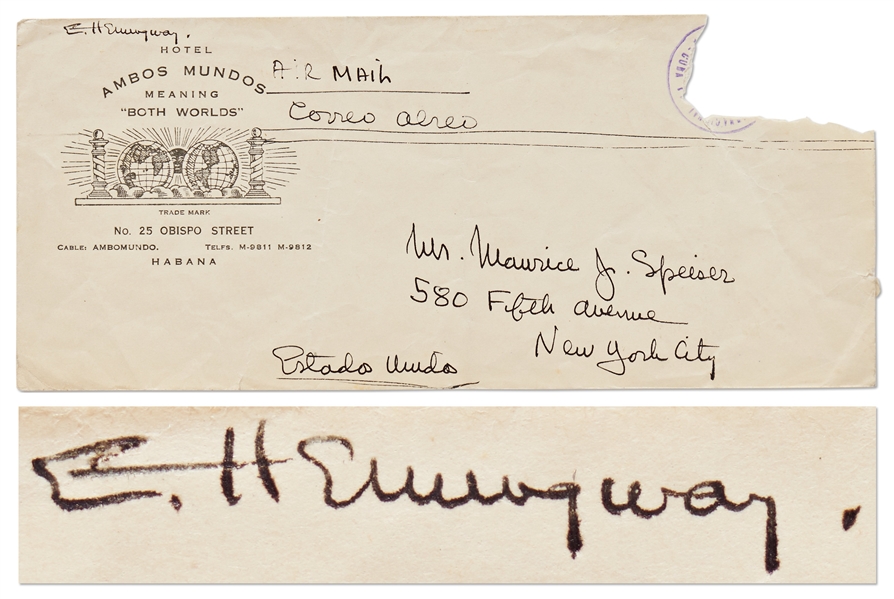 E. Hemingway.
HOTEL
AMBOS MUNDOS
MEANING
"BOTH WORLDS"
TRADE MARK
No. 25 OBISPO STREET
CABLE: AMBOMUNDO. TELFS. M-9811 M-9812
HABANA
AIR MAIL
Correo aereo
CUBA
Mr. Maurice J. Speiser
580 Fifth avenue
New York City
Estados Unidos
E. Hemingway.